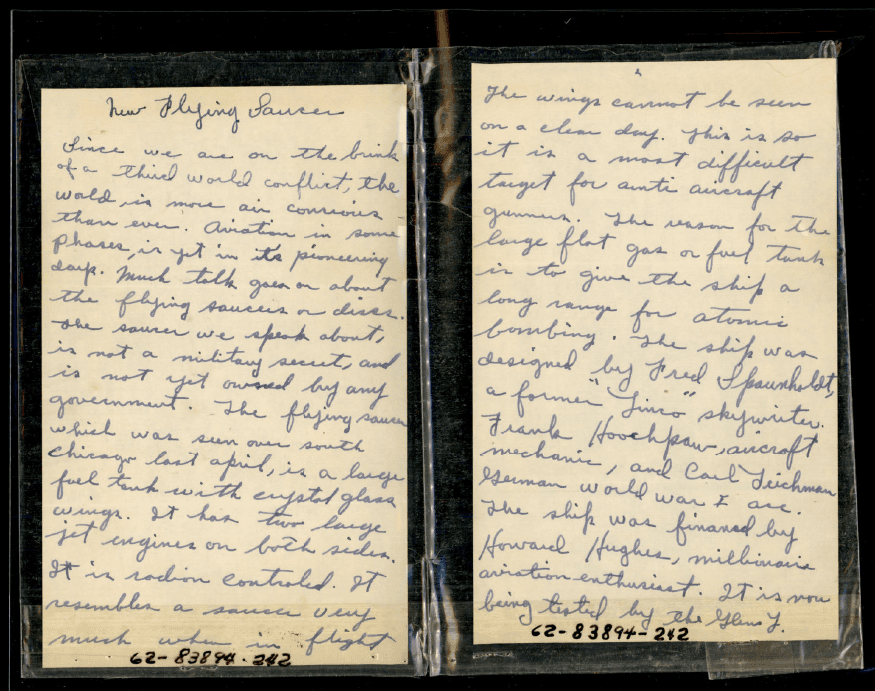 New Flying Saucer
Since we are on the brink
of a third world conflict, the
world, is more air conscious
than ever. Aviation in some
phases, is yet in it's pioneering
days. Much talk goes on about
the flying saucers or discs.
The saucer we speak about,
is not a military secret, and
is not yet owned by any
government. The flying saucer
which was seen over south
chicago last april, is a large
fuel tank with crystal glass
wings. It has two large
jet engines on both sides.
It is radion controled. It
resembles a saucer very
much when in flight
62-83894-242
The wings cannot be seen
on a clear day. This is so
it is a most difficult
target for anti aircraft
gunners. The reason for the
large flat gas or fuel tank
is to give the ship a
long range for atomic
bombing. The ship was
designed by Fred Spaunholdt,
a former skywriter.
Frank Hoochpaw, aircraft
mechanic, and Carl Teichman
German world war I ace.
The ship was financed by
Howard Hughes, millionaire
aviation enthusiast. It is now
being tested by the Glenn L.
62-83894-242